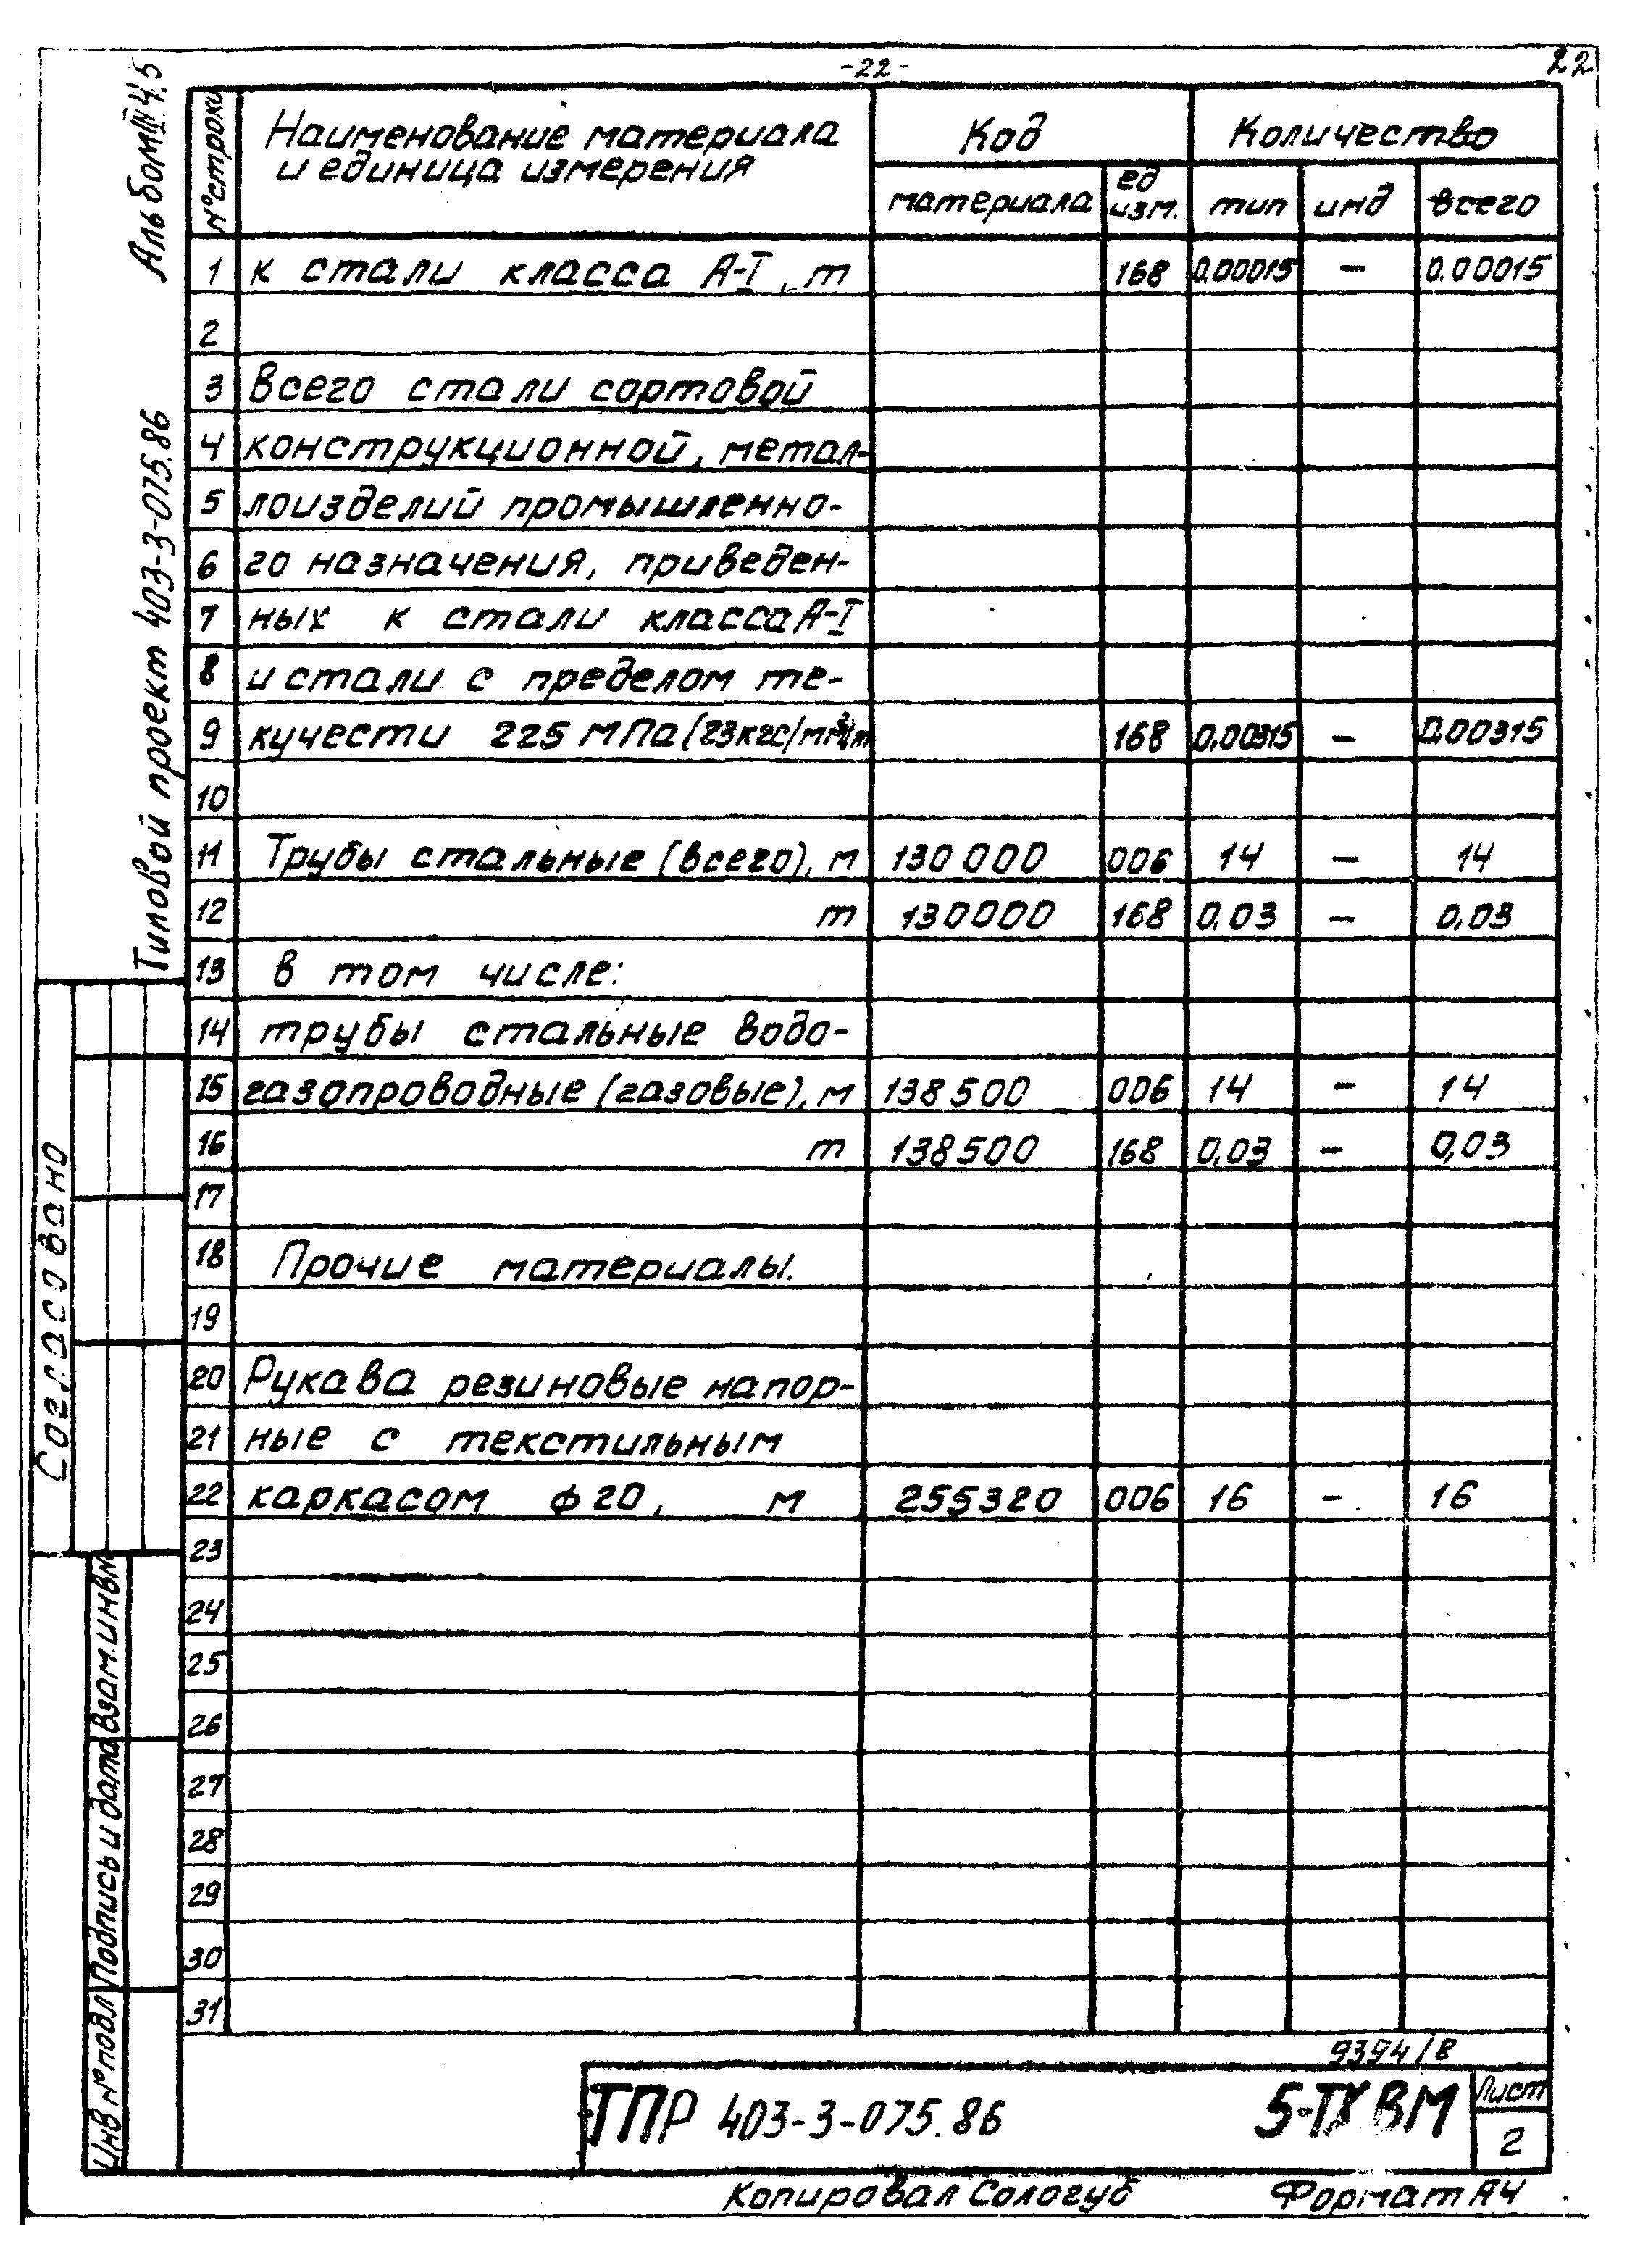 -22-
22
Альбом III Ч.5
Типовой проект 403-3-075.86
№ строки
Наименование материала
и единица измерения
Код
Количество
материала
ед
изм.
тип
инд
всего
1 к стали класса А-I, т 168 0,00015 — 0,00015
2
3 Всего стали сортовой
4 конструкционной, метал-
5 лоизделий промышленно-
6 го назначения, приведен-
7 ных к стали класса А-I
8 и стали с пределом те-
9 кучести 225 МПа (23кгс/мм²), т 168 0,00315 — 0,00315
10
11 Трубы стальные (всего), м 130 000 006 14 — 14
12 т 130000 168 0,03 — 0,03
13 в том числе:
14 трубы стальные водо-
15 газопроводные (газовые), м 138500 006 14 — 14
16 т 138500 168 0,03 — 0,03
17
18 Прочие материалы.
19
20 Рукава резиновые напор-
21 ные с текстильным
22 каркасом ф 20, м 255320 006 16 — 16
23
24
25
26
27
28
29
30
31
Согласовано
Взам.инв№
Подпись и дата
Инв № подл
9394/8
ТПР 403-3-075.86
5-ТХ ВМ
Лист
2
Копировал Сологуб
Формат А4